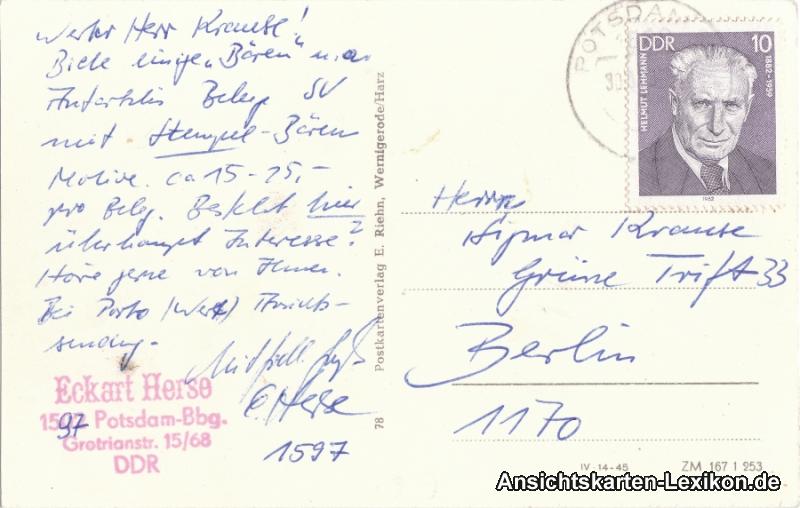 Werter Herr Krause!
Biete einige „Bären" u.a.
Antarktis Belege SV
mit Stempel-Bären
Motive. ca 15-25,-
pro Beleg. Besteht hier
überhaupt Interesse?
Höre gerne von Ihnen.
Bei Porto (Wert) Ansichts-
sendung.
E. Herse
1597
Eckart Herse
Potsdam-Bbg.
97
Grotrianstr. 15/68
DDR
78 Postkartenverlag E. Riehn, Wernigerode/Harz
POTSDAM
DDR 10
HELMUT LEHMANN
1882-1959
1982
Herrn
Sigmar Krause
Grüne Trift 33
Berlin
1170
IV-14-45 ZM 167 1 253
Ansichtskarten-Lexikon.de